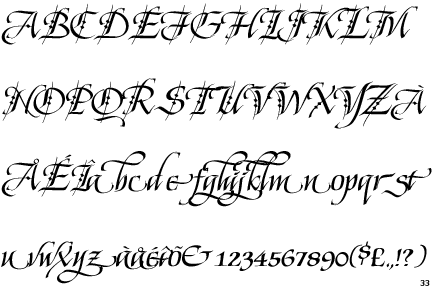 ABCDEFGHIJKLM
NOPQRSTUVWXYZÀ
ÅÉÎabcdefghijklmnopqrst
uvwxyzàåéîõ&1234567890($£.,!?)
33